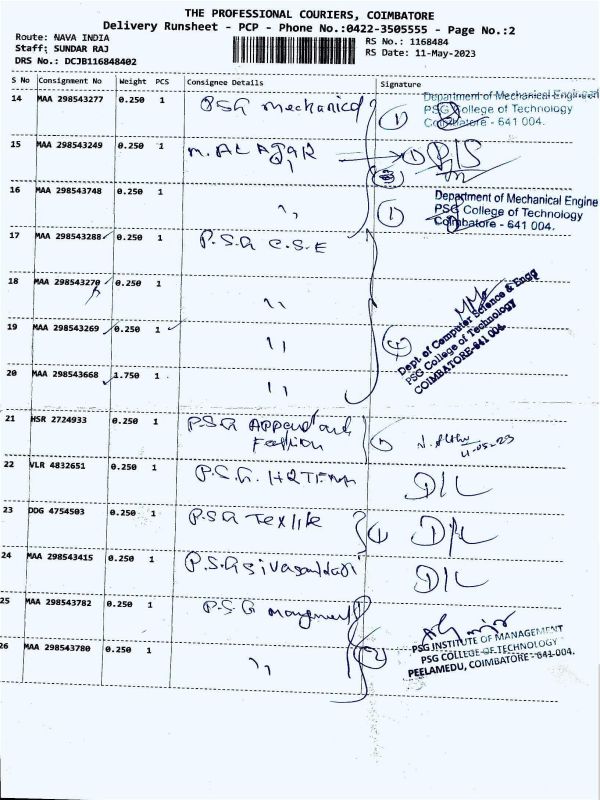 THE PROFESSIONAL COURIERS, COIMBATORE
Delivery Runsheet - PCP - Phone No.:0422-3505555 - Page No.:2
Route: NAVA INDIA
Staff: SUNDAR RAJ
DRS No.: DCJB116848402
RS No.: 1168484
RS Date: 11-May-2023
S No Consignment No Weight PCS Consignee Details Signature
14 MAA 298543277 0.250 1 PSG mechanical 1
Department of Mechanical Engineeri
PSG College of Technology
Coimbatore - 641 004.
15 MAA 298543249 0.250 1 1
16 MAA 298543748 0.250 1 ,, 1
Department of Mechanical Engine
PSG College of Technology
Coimbatore - 641 004.
17 MAA 298543288 0.250 1 P.S.G C.S.E
18 MAA 298543270 0.250 1 ,,
19 MAA 298543269 0.250 1 ,, 4
Dept of Computer Science & Engg
PSG College of Technology
COIMBATORE-641 004.
20 MAA 298543668 1.750 1 ,,
21 HSR 2724933 0.250 1 PSG 1
11-05-23
22 VLR 4832651 0.250 1 P.S.G. D/L
23 DDG 4754503 0.250 1 P.S.G Textile 1 D/L
24 MAA 298543415 0.250 1 P.S.G D/L
25 MAA 298543782 0.250 1 P.S.G
26 MAA 298543780 0.250 1 ,, 2
PSG INSTITUTE OF MANAGEMENT
PSG COLLEGE OF TECHNOLOGY
PEELAMEDU, COIMBATORE - 641 004.